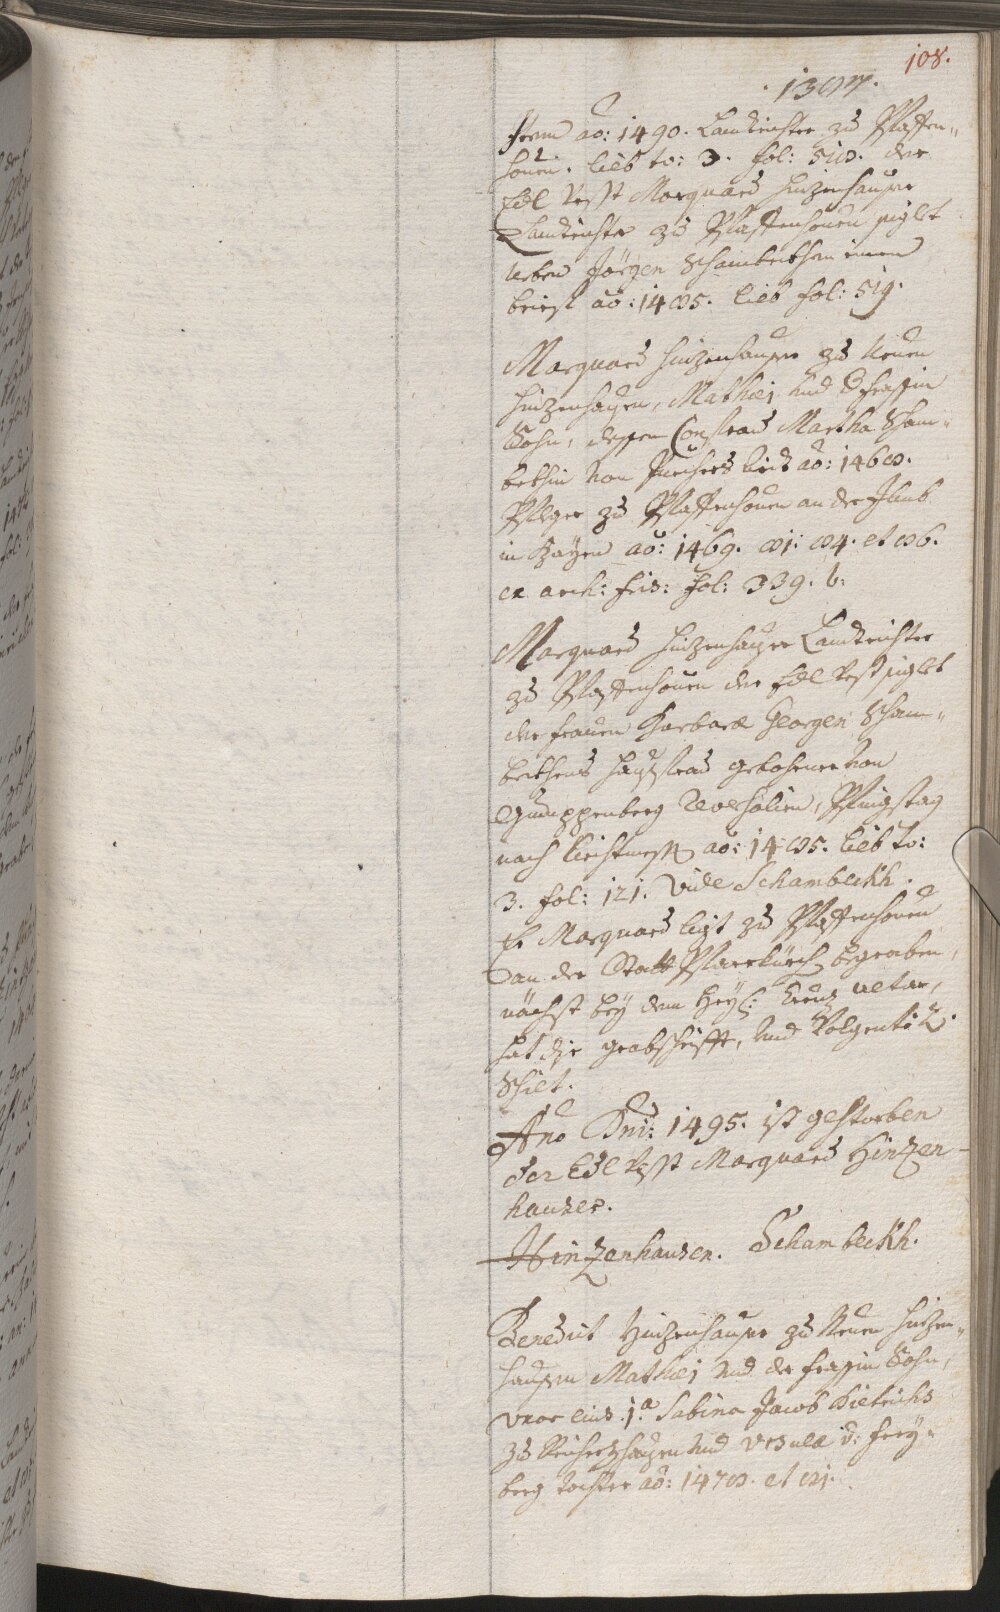 108.
1307.
ferm ao: 1490. Landrichter zu Pfaffen=
houen. lieb to: 3. fol: 518. der
Edl Vesst Marquard Hinzenhauser
Landrichter zu Pfaffenhouen siglet
Jörgen Schambekhen einen
brieff ao: 1485. lieb fol: 519.
Marquard Hinzenhauser zu Neuen
Hinzenhausen, Mathiej und D. frassin
Sohn, dessen Consfrau Martha Scham=
bekhin von ao: 1468.
Pfleger zu Pfaffenhouen an der Ilmb
in Bayrn ao: 1469. 81: 84. et 86.
ex arch: fris: fol: 339. b:
Marquard Hinzenhauser Landrichter
zu Pfaffenhouen der Edl Vest siglet
der frauen Barbara Georgen Scham=
bekhens haussfrau gebohrner von
Gumppenberg Pfingstag
nach liechtmess ao: 1485. lieb to:
3. fol: 121. Vide Schambeckh.
Er Marquard ligt zu Pfaffenhouen
an der Statt Pfarrkürch begraben,
nächst bey dem Heyl: Creuz altar,
hat dise grabschrifft, und Volgente 2.
Schilt.
Ano Dni: 1495. ist gestorben
der Edl Vesst Marquard Hinzen=
hauser.
Hinzenhausen. Schambeckh.
Benedict Hinzenhauser zu Neuen Hinzen=
hausen Mathiej und der frassin Sohn,
vxor eius 1.a Sabina Jacob Dietrichs
zu und Vrsula v: Frey=
berg tochter ao: 1478. et 81.